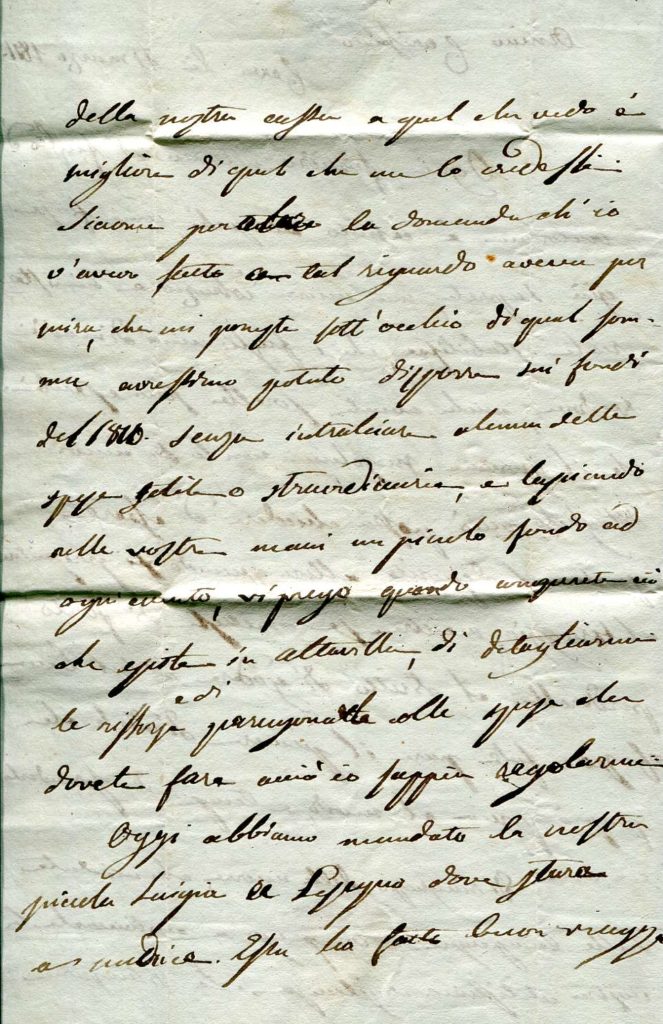 della nostra cassa a quel che vedo è
migliore di quel che me lo credessi.
Siccome la domanda ch'io
v'avevo fatta a tal riguardo aveva per
mira, che mi poneste sott'occhio di qual som-
ma avressimo potuto disporre sui fondi
del senza intralciare alcuna delle
spese o straordinarie, e lasciando
nelle vostre mani un piccolo fondo ad
ogni evento, vi prego quando
che esiste in altavilla, di detagliarmi
le rissorse e di paragonarle colle spese che
dovete fare acciò io sappia regolarmi.
Oggi abbiamo mandato la nostra
piccola Luigia a dove starà
a nudrice. Essa ha fatto buon viaggio